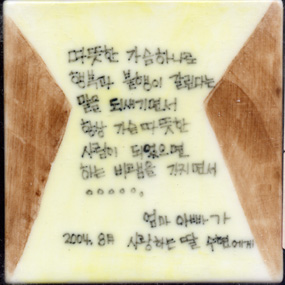 따뜻한 가슴하나로
행복과 불행이 갈린다는
말을 되새기면서
항상 가슴 따뜻한
사람이 되었으면
하는 바램을 가지면서
. . . . . .
엄마 아빠가
2004. 8月 사랑하는 딸 수현에게